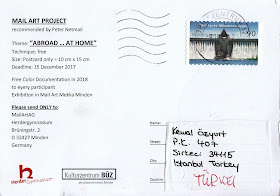 MAIL ART PROJECT
recommended by Peter Netmail
Theme: "ABROAD ... AT HOME"
Technique: free
Size: Postcard only = 10 cm x 15 cm
Deadline: 15 Dezember 2017
Free Color Documentation in 2018
to every participant
Exhibition in Mail Art Mekka Minden
Please send ONLY to:
MailArtAG
Herdergymnasium
Brüningstr. 2
D 32427 Minden
Germany
Herder Gymnasium
Kulturzentrum BÜZ
90
Kemal Özyurt
P.K. 407
Sirkeci 34115
Istanbul Turkey
TÜRKEI